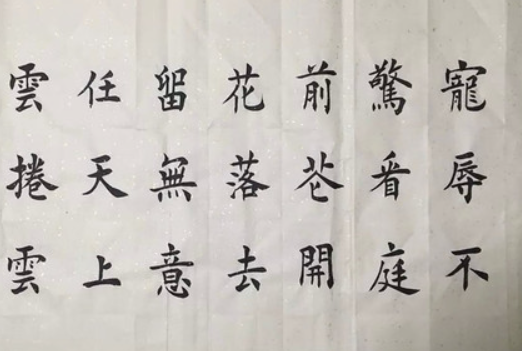 寵辱不
驚看庭
前花開
花落去
留無意
任天上
雲捲雲